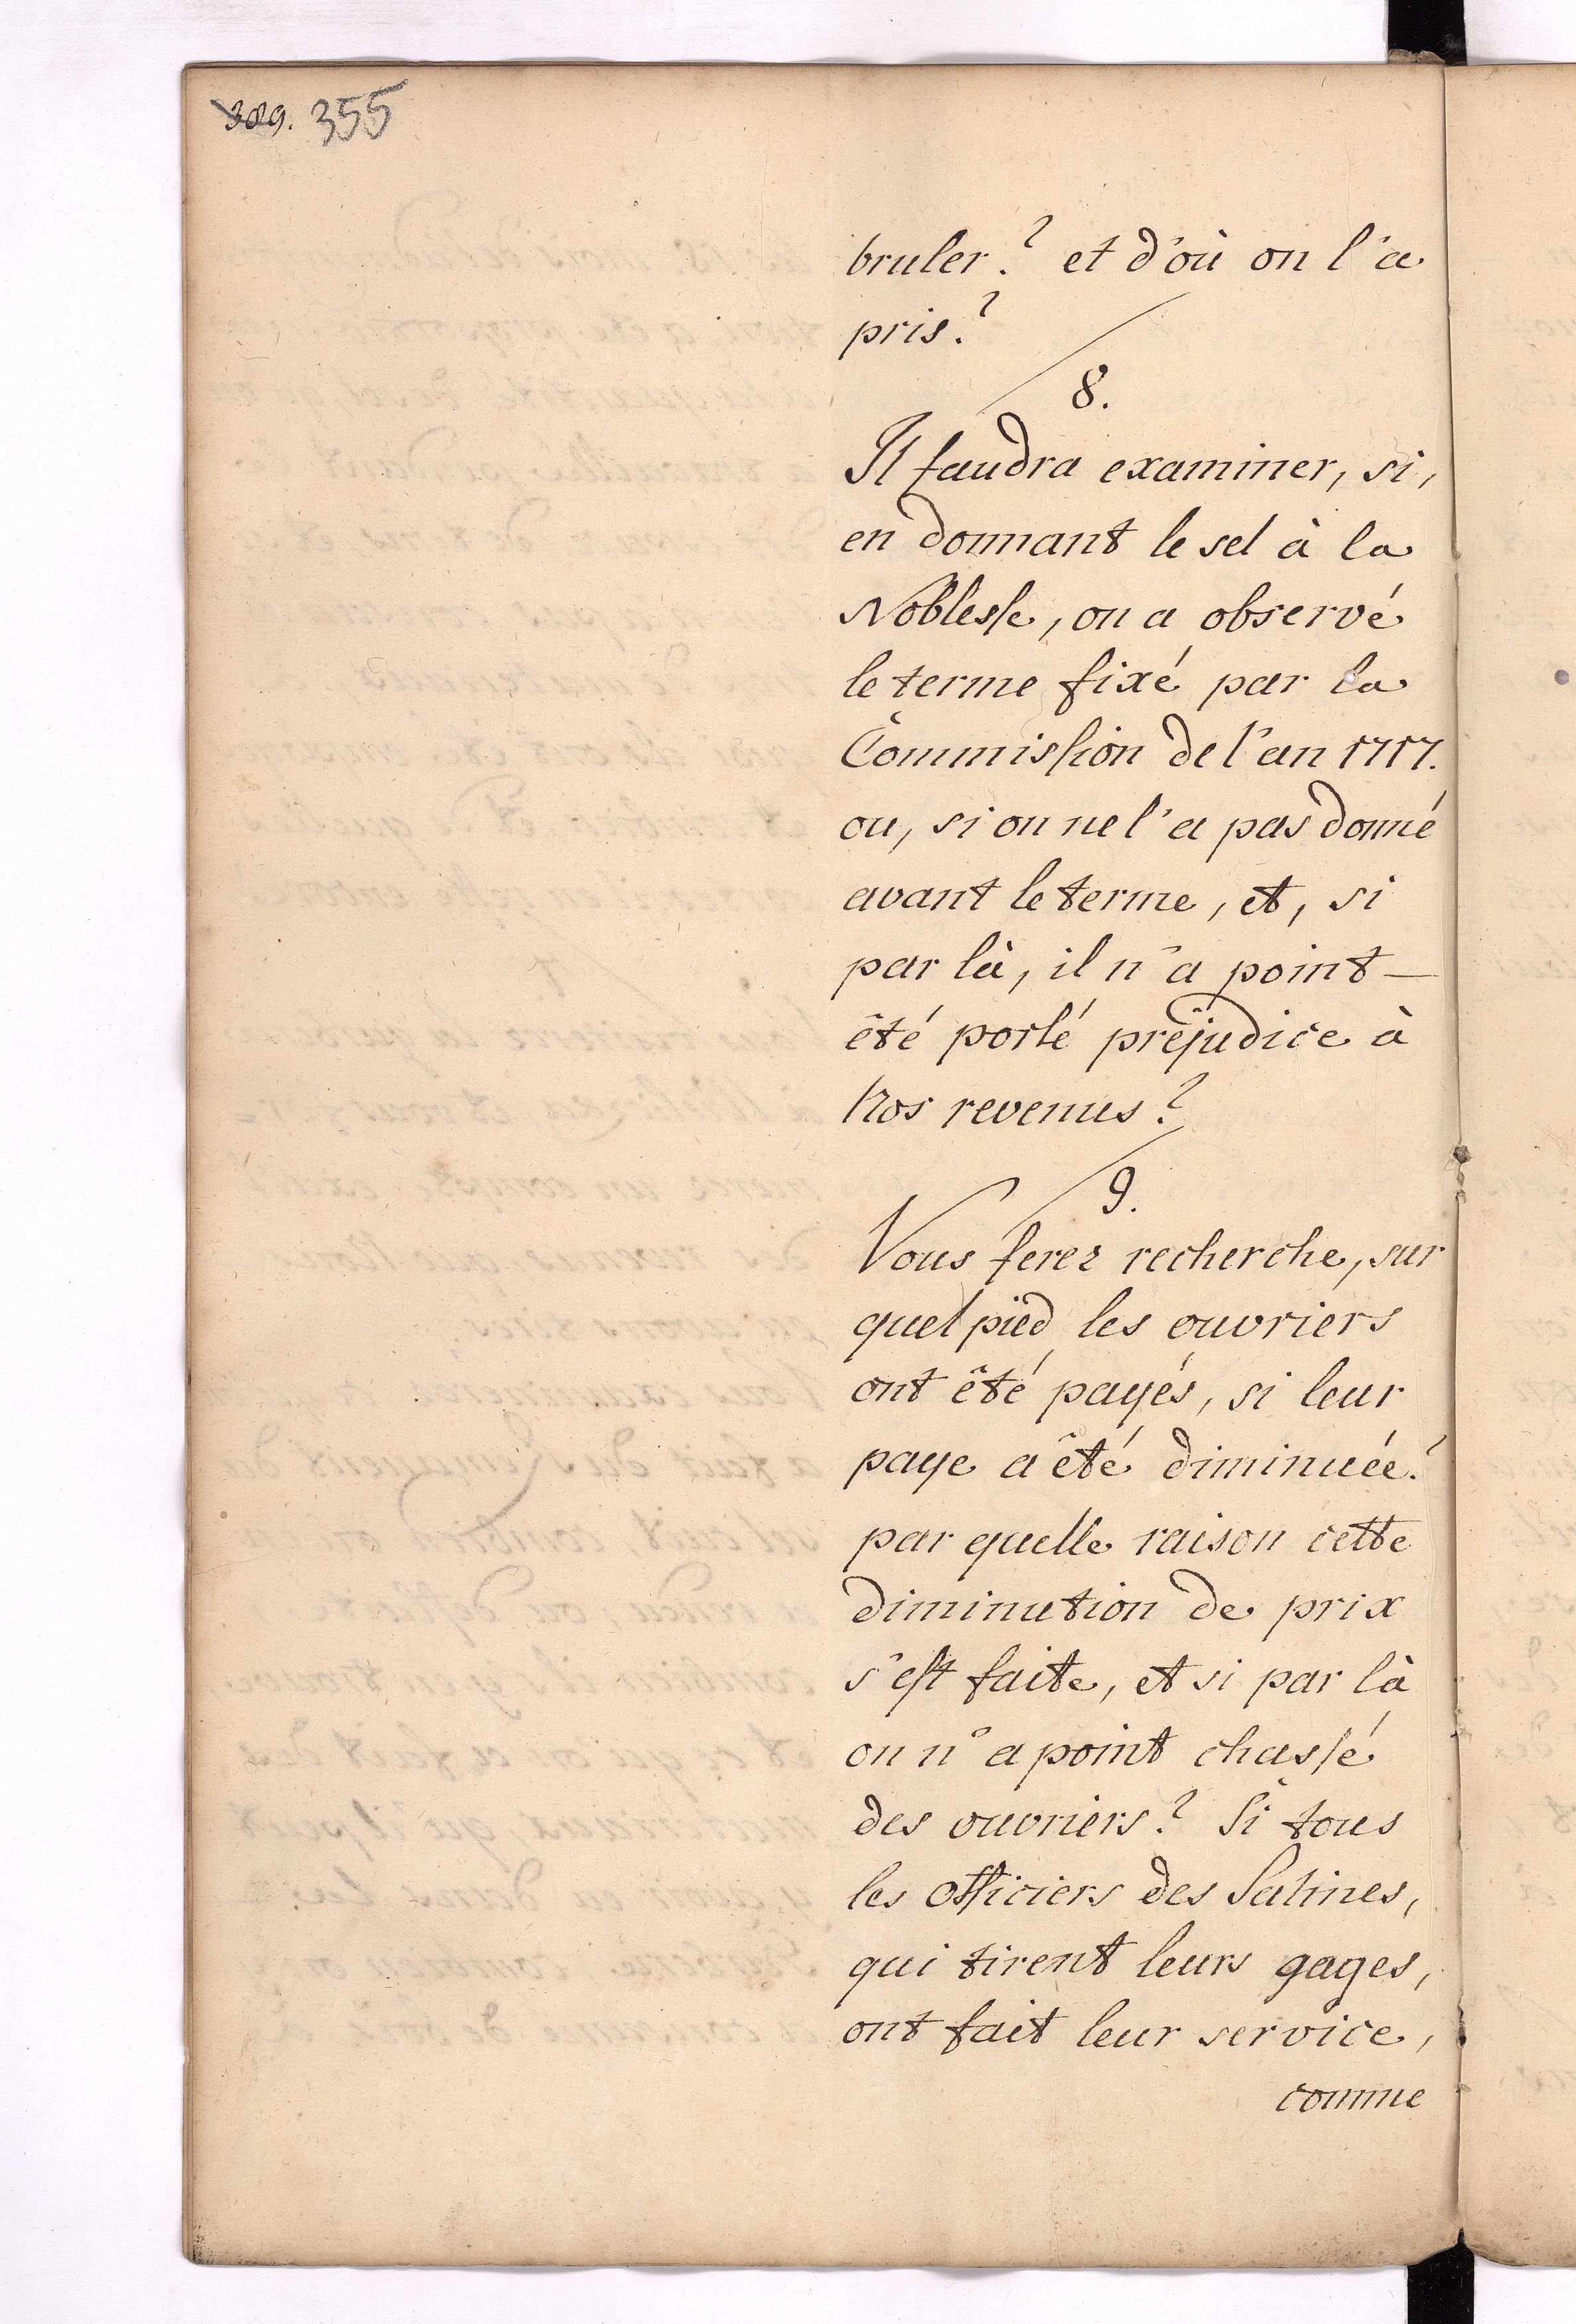 389. 355
bruler? et d'où on l'a
pris?
8.
Il faudra examiner, si,
en donnant le sel à la
Noblesse, on a observé
le terme fixé par la
Commission de l'an 1717.
ou, si on ne l'a pas donné
avant le terme, et, si
par là, il n'a point —
êté porté prêjudice à
Nos revenus?
9.
Vous ferez recherche, sur
quel pied les ouvriers
ont êté payés, si leur
paye a êté diminuée?
par quelle raison cette
diminution de prix
s'est faite, et si par là
on n'a point chassé
des ouvriers? Si tous
les Officiers des Salines,
qui tirent leurs gages,
ont fait leur service,
comme